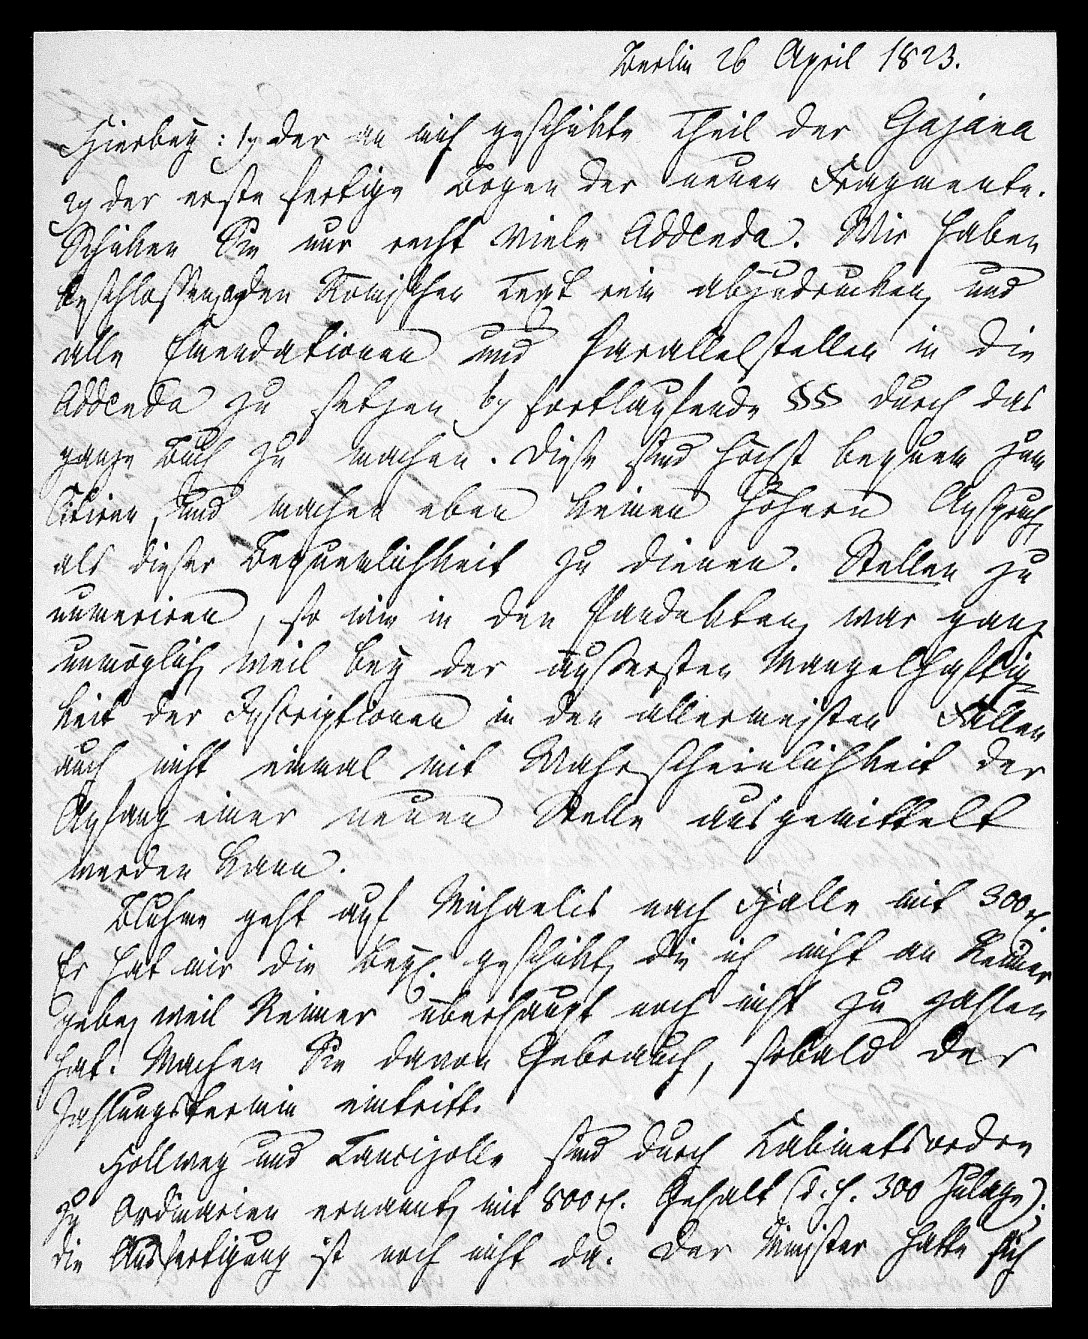 Berlin 26 April 1823.
Hierbey: 1) der an mich geschickte Theil der Gajana
2) der erste fertige Bogen der neuen Fragmente.
Schicken Sie nur recht viele Addenda. Wir haben
beschlossen a) den Römischen Text rein abzudrucken, und
alle Emendationen und Parallelstellen in die
Addenda zu setzen b) fortlaufende §§§ durch das
ganze Buch zu machen. Diese sind höchst bequem zum
Citiren, und machen eben keinen höhern Anspruch
als dieser Bequemlichkeit zu dienen. Stellen zu
numeriren, so wie in den Pandekten, war ganz
unmöglich, weil bey der äußersten Mangelhaftig-
keit der Inscriptionen in den allermeisten Fällen
auch nicht einmal mit Wahrscheinlichkeit der
Anfang einer neuen Stelle ausgemittelt
werden kann.
Bluhme geht auf Michaelis nach Halle mit 300 r.
Er hat mir die geschickt, die ich nicht an Reimer
gebe, weil Reimer überhaupt noch nicht zu zahlen
hat. Machen Sie davon Gebrauch, sobald der
Zahlungstermin eintritt.
Hollweg und Lancizolle sind durch Cabinetsordre
zu Ordinarien ernannt, mit 800 r. Gehalt (d. h. 300 Zulage).
die Ausfertigung ist noch nicht da. Der Minister hatte sich